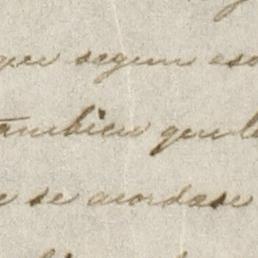 que segun eso
tambien que l
e se acordase